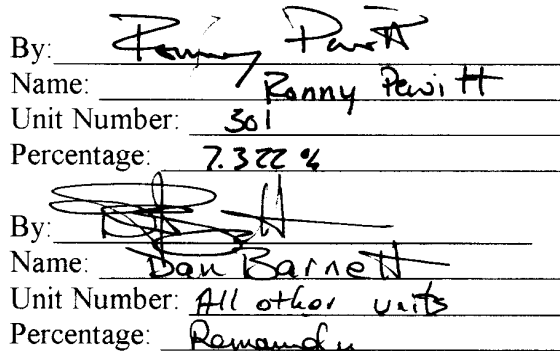 By: Ronny Pewitt
Name: Ronny Pewitt
Unit Number: 301
Percentage: 7.322 %
By:
Name: Dan Barnett
Unit Number: All other units
Percentage: